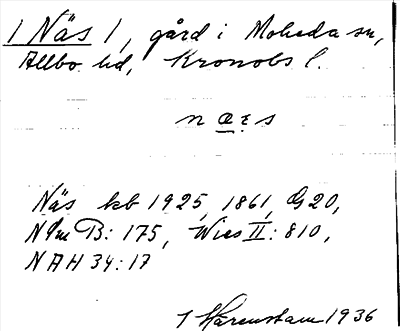 1 Näs 1, gård i Moheda sn,
Allbo hd, Kronobs l.
næs
Näs kb 1925, 1861, G20,
NSm B: 175, Wies II: 810,
NAH 34: 17
1 Harenstam 1936